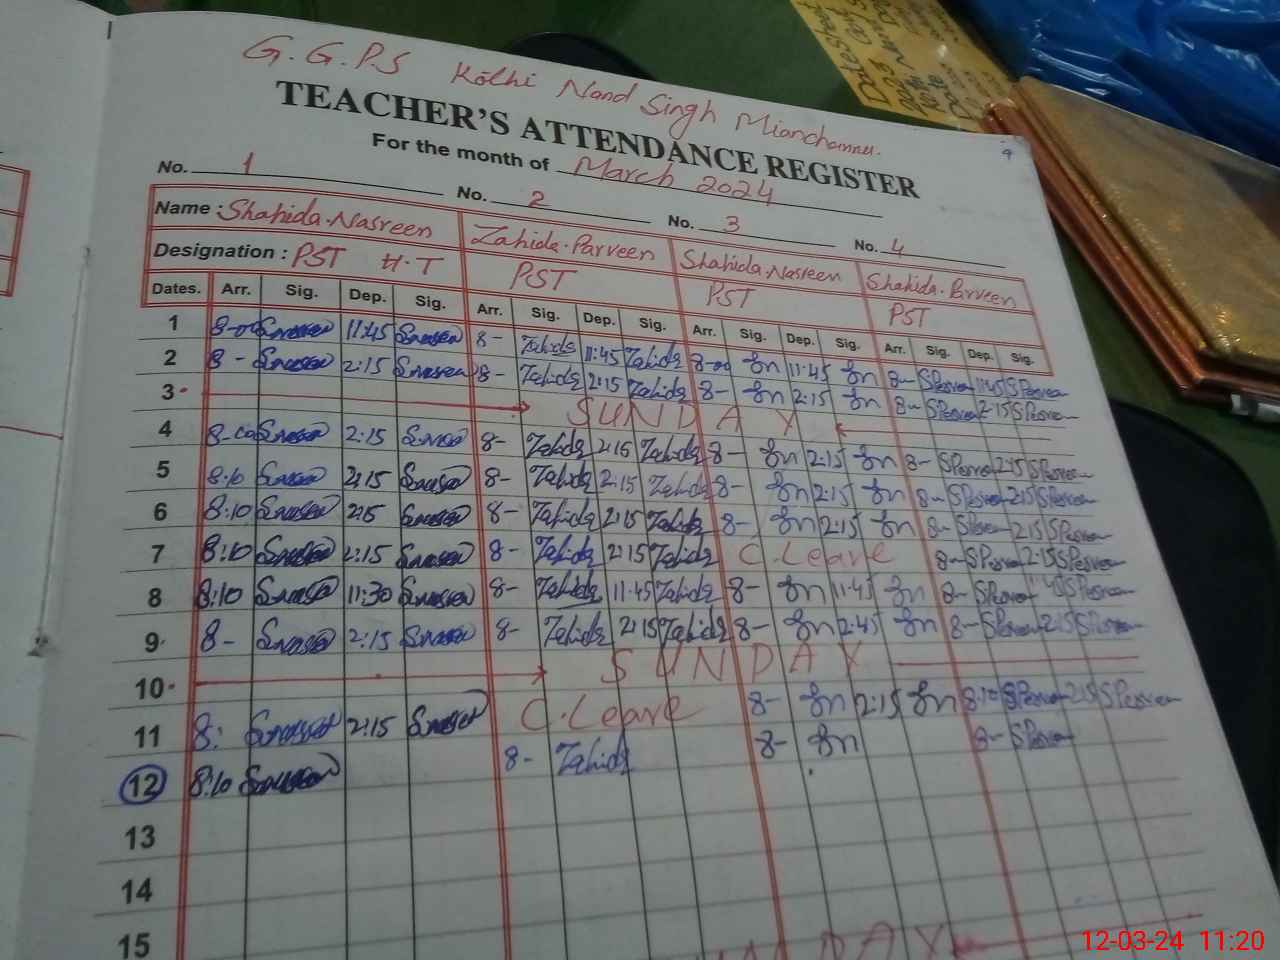 G.G.P.S Kothi Nand Singh Mianchannu.
TEACHER'S ATTENDANCE REGISTER
For the month of March 2024
9
No. 1 No. 2 No. 3 No. 4
Name : Shahida Nasreen Zahida Parveen Shahida Nasreen Shahida Parveen
Designation : PST H.T PST PST PST
Dates. Arr. Sig. Dep. Sig. Arr. Sig. Dep. Sig. Arr. Sig. Dep. Sig. Arr. Sig. Dep. Sig.
1 8-00 Snasreen 11:45 Snasreen 8- Zahida 11:45 Zahida 8-00 Sn 11:45 Sn 8- SParveen 11:45 SParveen
2 8- Snasreen 2:15 Snasreen 8- Zahida 2:15 Zahida 8- Sn 2:15 Sn 8- SParveen 2:15 SParveen
3 SUNDAY
4 8-00 Snasreen 2:15 Snasreen 8- Zahida 2:15 Zahida 8- Sn 2:15 Sn 8- SParveen 2:15 SParveen
5 8:10 Snasreen 2:15 Snasreen 8- Zahida 2:15 Zahida 8- Sn 2:15 Sn 8- SParveen 2:15 SParveen
6 8:10 Snasreen 2:15 Snasreen 8- Zahida 2:15 Zahida 8- Sn 2:15 Sn 8- SParveen 2:15 SParveen
7 8:10 Snasreen 2:15 Snasreen 8- Zahida 2:15 Zahida C.Leave 8- SParveen 2:15 SParveen
8 8:10 Snasreen 11:30 Snasreen 8- Zahida 11:45 Zahida 8- Sn 11:45 Sn 8- SParveen SParveen
9 8- Snasreen 2:15 Snasreen 8- Zahida 2:15 Zahida 8- Sn 2:45 Sn 8- SParveen 2:15 SParveen
10 SUNDAY
11 8: Snasreen 2:15 Snasreen C.Leave 8- Sn 2:15 Sn 8:10 SParveen 2:15 SParveen
12 8:10 Snasreen 8- Zahida 8- Sn 8- SParveen
13
14
15
12-03-24 11:20